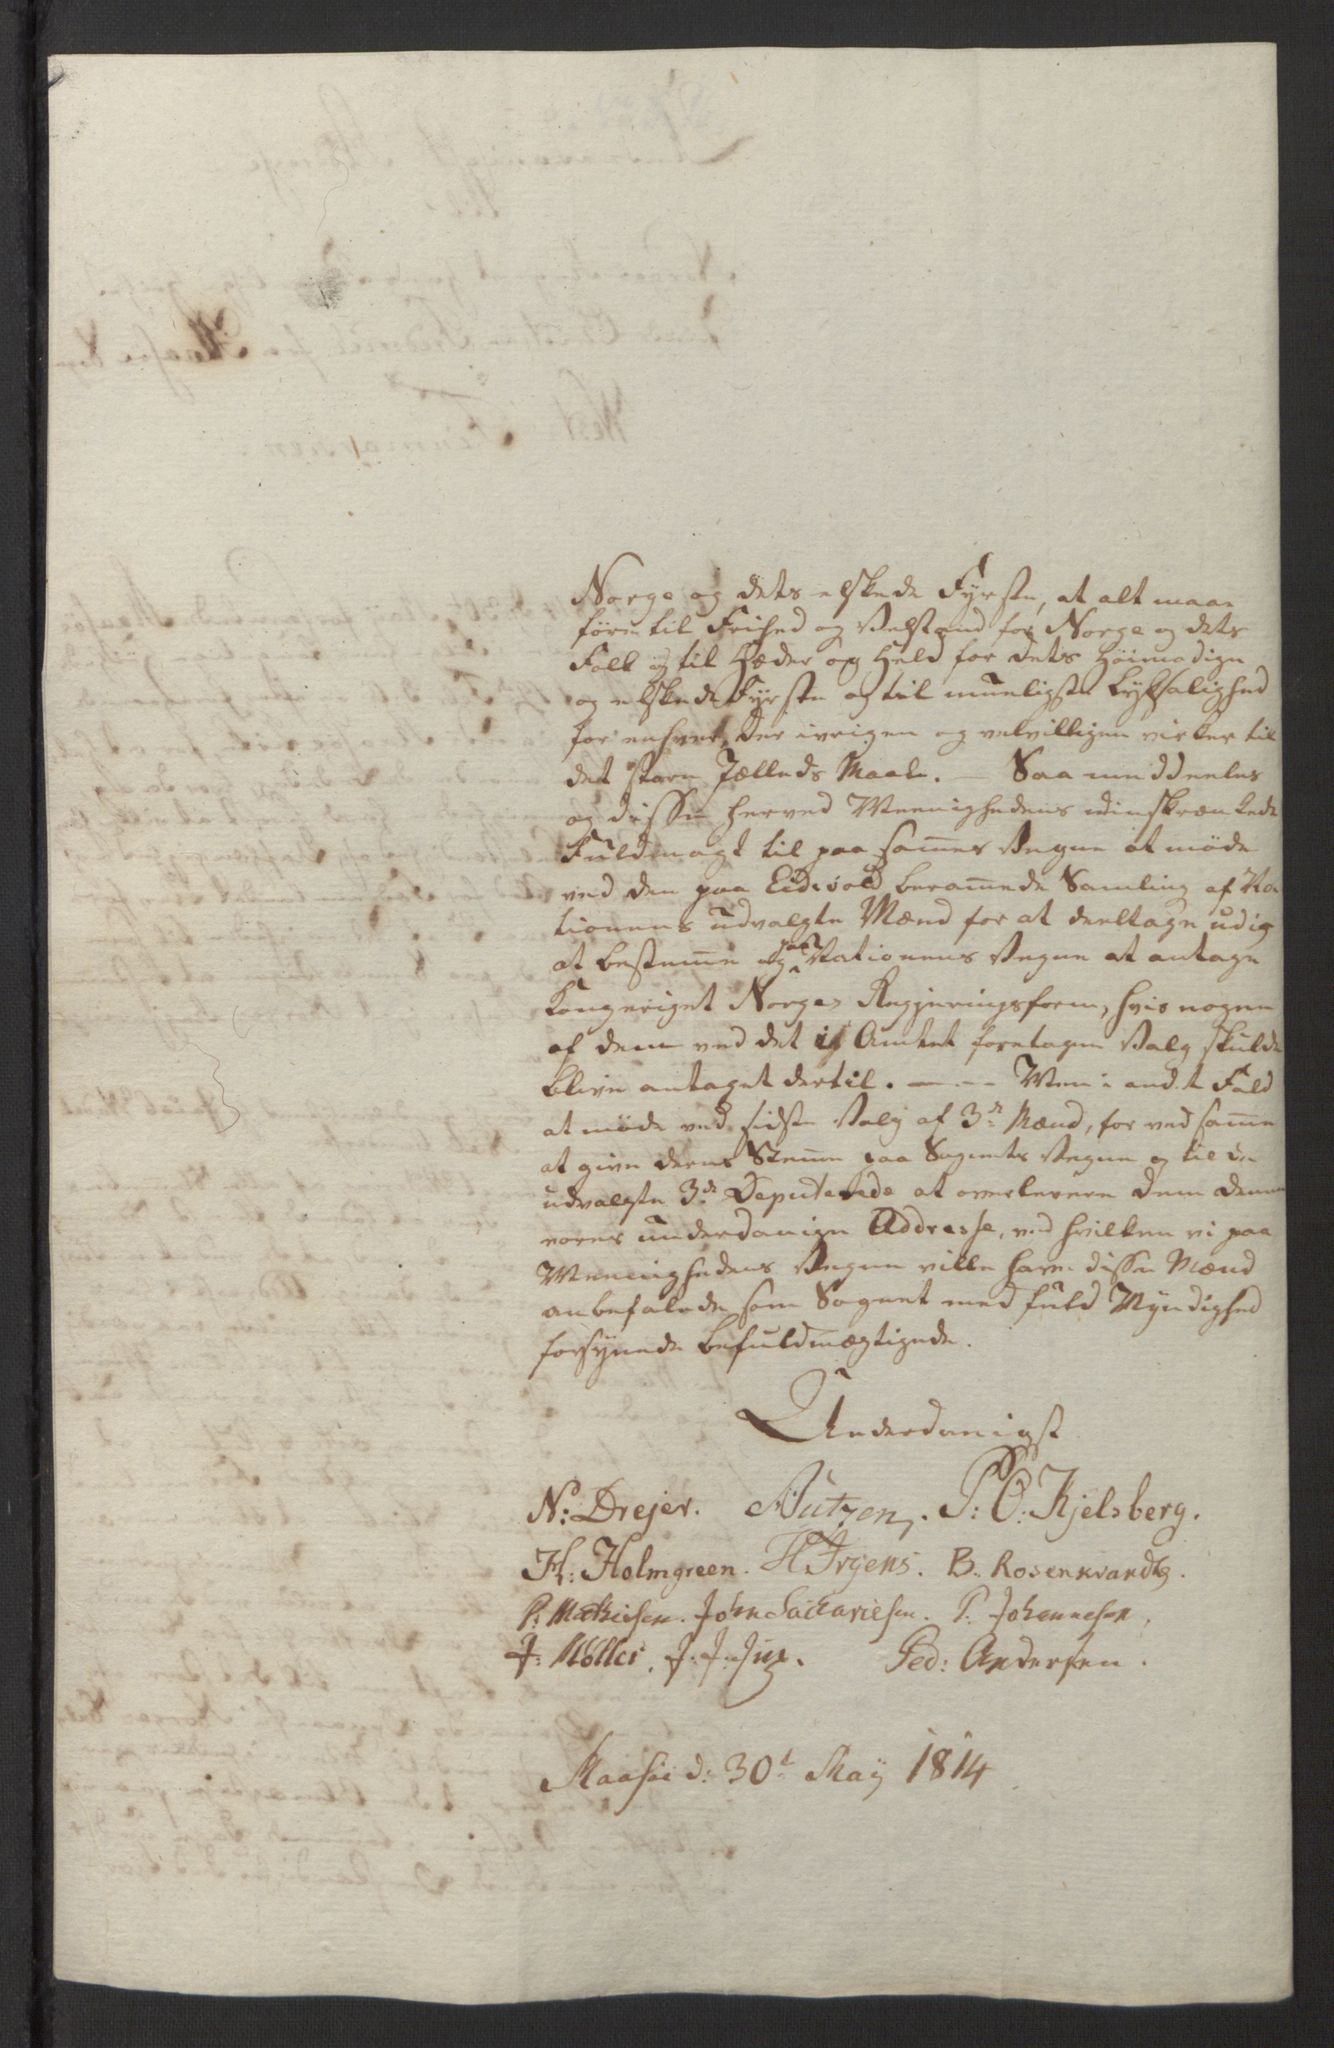 Norge og dets elskede Fyrste, at alt maae
føre til Frihed og Velstand for Norge og dets
Folk og til Hæder og Held for dets høimodige
og elskede Fyrste og til mueligste Lyksalighed
for enhver, der ivrigen og velvilligen virker til
det store Fælleds Maal. — Saa meddeeles
og disse herved Meenighedens uindskrænkede
Fuldmagt til paa sammes Vegne at møde
ved den paa Eidsvold berammede Samling af Na
tionens udvalgte Mænd for at deeltage udi
at bestemme og paa Nationens Vegne at antage
Kongeriget Norges Regjeringsform, hvis nogen
af dem ved det i Amtet foretagne Valg skulde
blive antaget dertil. — — Men i andet Fald
at møde ved sidste Valg af 3de Mænd, for ved samme
at give deres Stemme paa Sognets Vegne og til de
udvalgte 3de Deputerede at overlevere dem denne
vores underdanige Addresse, ved hvilken vi paa
Meenighedens Vegne ville have disse Mænd
anbefalede som Sognet med fuld Myndighed
forsynede befuldmægtigede.
Underdanigst
N: Drejer. Nutzen. P: O: Kjelsberg.
H: Holmgreen. H Irgens. B. Rosenkrandtz.
P: Mathisen. John Sackariesen. P. Johannesen,
J: Möller, J. J. Jue. Ped: Andersen.
Maasöe d: 30t May 1814